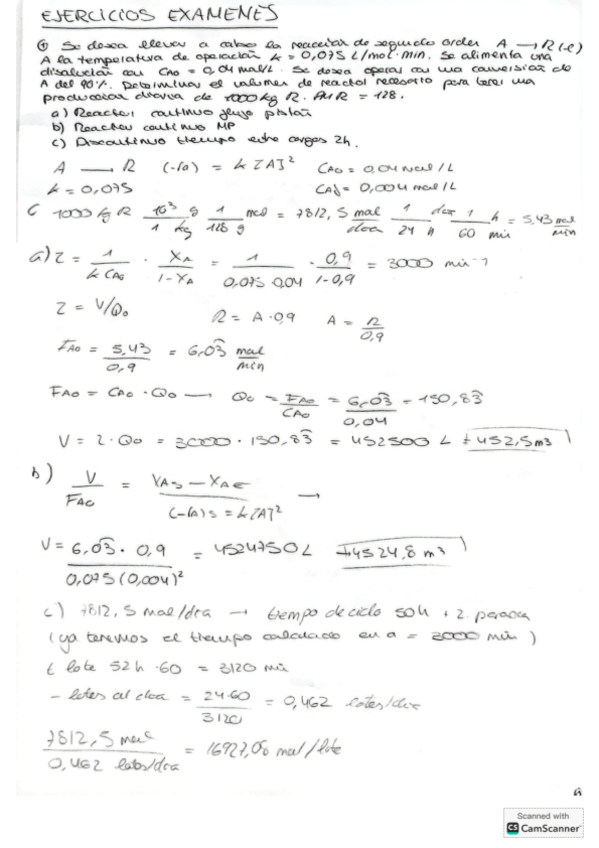 EJERCICIOS EXAMENES
① Se desea llevar a cabo la reacción de segundo orden A → R (l)
A la temperatura de operación k = 0,075 L/mol·min. Se alimenta una
disolución con CAo = 0,04 mol/L. Se desea operar con una conversión de
A del 90%. Determinar el volumen de reactor necesario para tener una
producción diaria de 1000 kg R. PMR = 128.
a) Reactor continuo flujo pistón
b) Reactor continuo MP
c) Discontinuo tiempo entre cargas 2h.
A → R (-rA) = k [A]² CAo = 0,04 mol/L
k = 0,075 CAf = 0,004 mol/L
1000 kg R 10³ g / 1 kg 1 mol / 128 g = 7812,5 mol/día 1 día / 24 h 1 h / 60 min = 5,43 mol/min
a) Z = 1 / k CAo · XA / 1-XA = 1 / 0,075 0,04 · 0,9 / 1-0,9 = 3000 min
Z = V/Qo R = A·0,9 A = R / 0,9
FAo = 5,43 / 0,9 = 6,03 mol/min
FAo = CAo · Qo → Qo = FAo / CAo = 6,03 / 0,04 = 150,83
V = Z · Qo = 3000 · 150,83 = 452500 L → 452,5 m3
b) V / FAo = XAS - XAE / (-rA)s = k[A]² →
V = 6,03 · 0,9 / 0,075 (0,004)² = 4524750 L → 4524,8 m3
c) 7812,5 mol/día → tiempo de ciclo 50h + 2 parada
(ya tenemos el tiempo calculado en a = 3000 min)
t lote 52 h · 60 = 3120 min
- lotes al día = 24·60 / 3120 = 0,462 lotes/día
7812,5 mol / 0,462 lotes/día = 16927,08 mol/lote
Scanned with
CS CamScanner